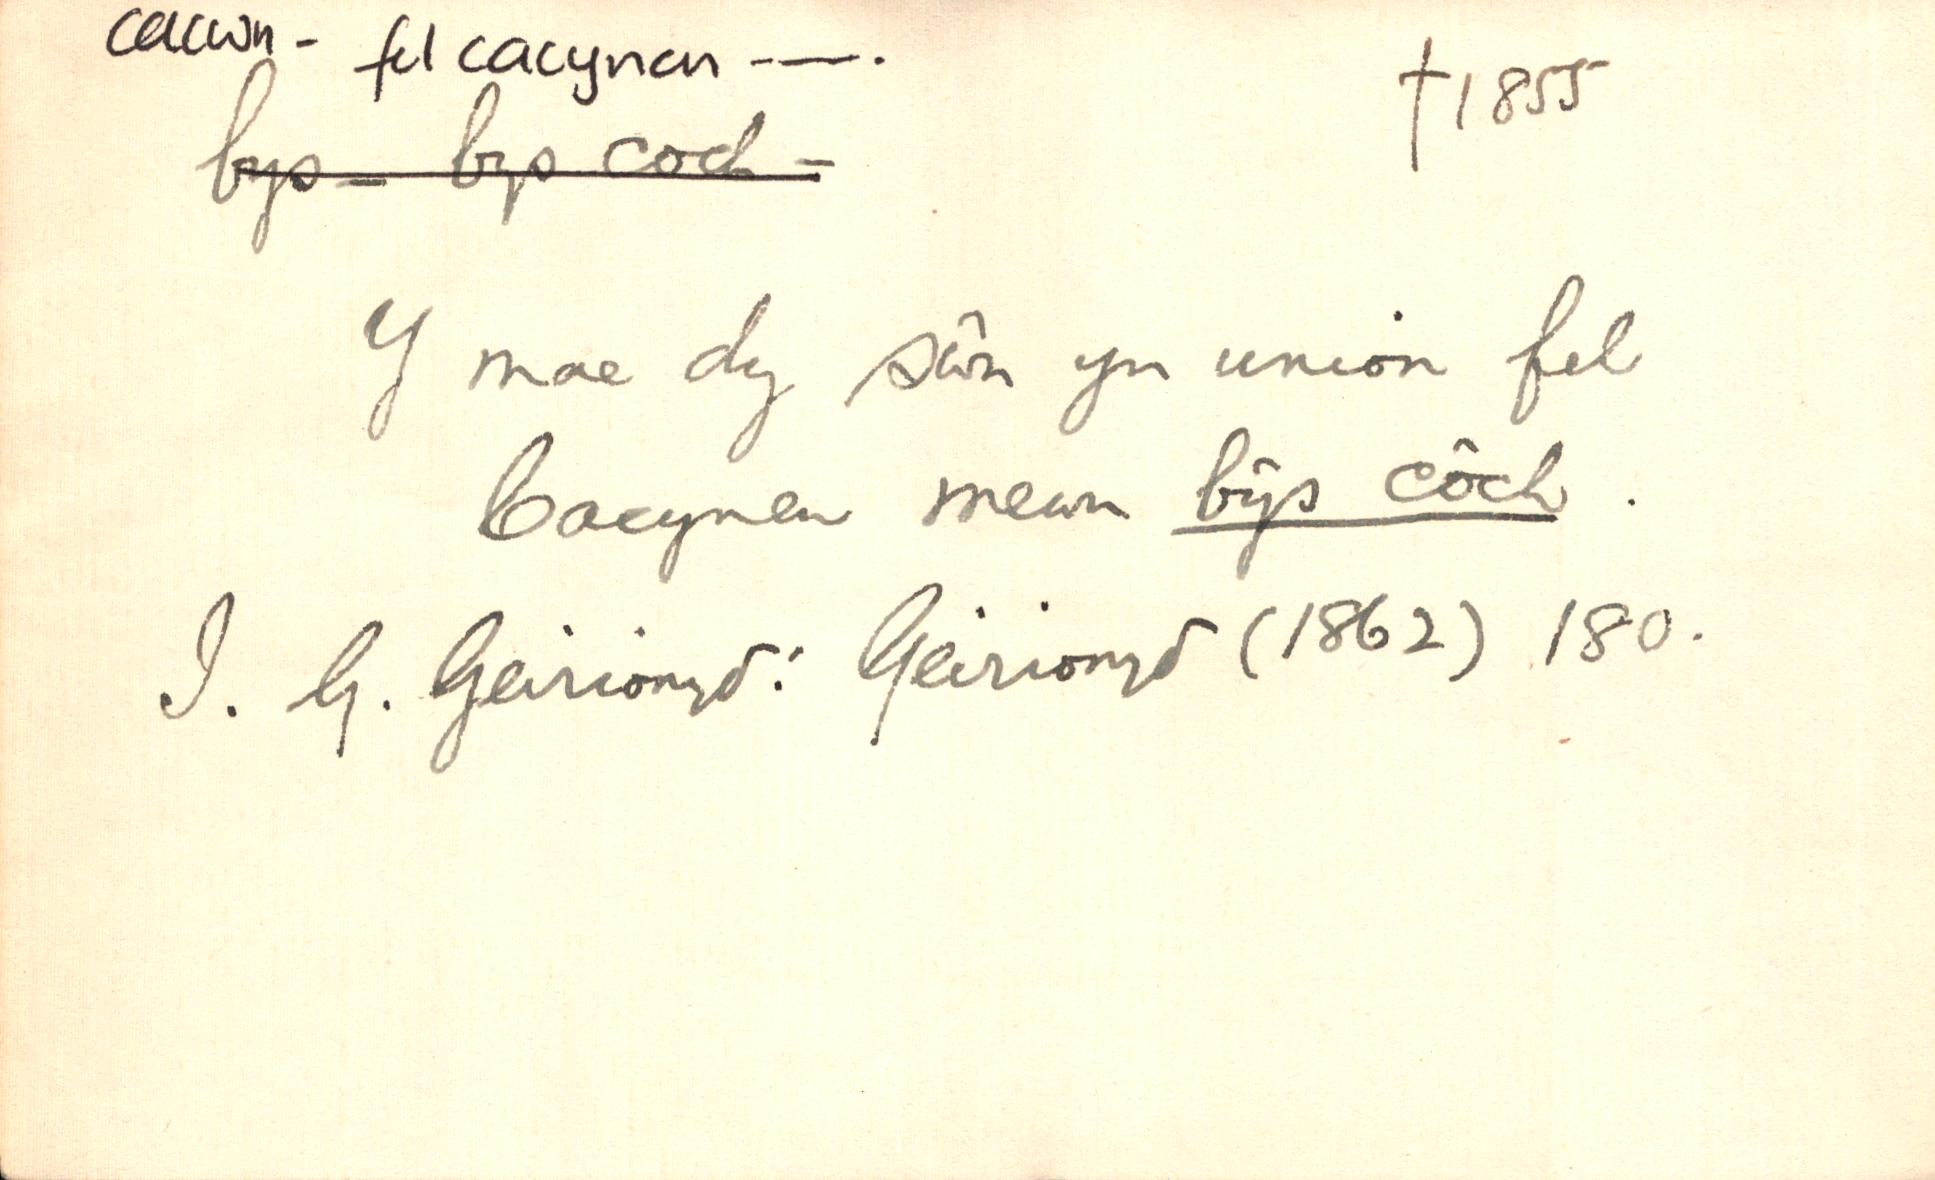 cacwn - fel cacynen -—.
†1855
bys - bys coch -
Y mae dy sŵn yn union fel
Cacynen mewn bŷs côch.
I. G. Geirionyδ: Geirionyδ (1862) 180.